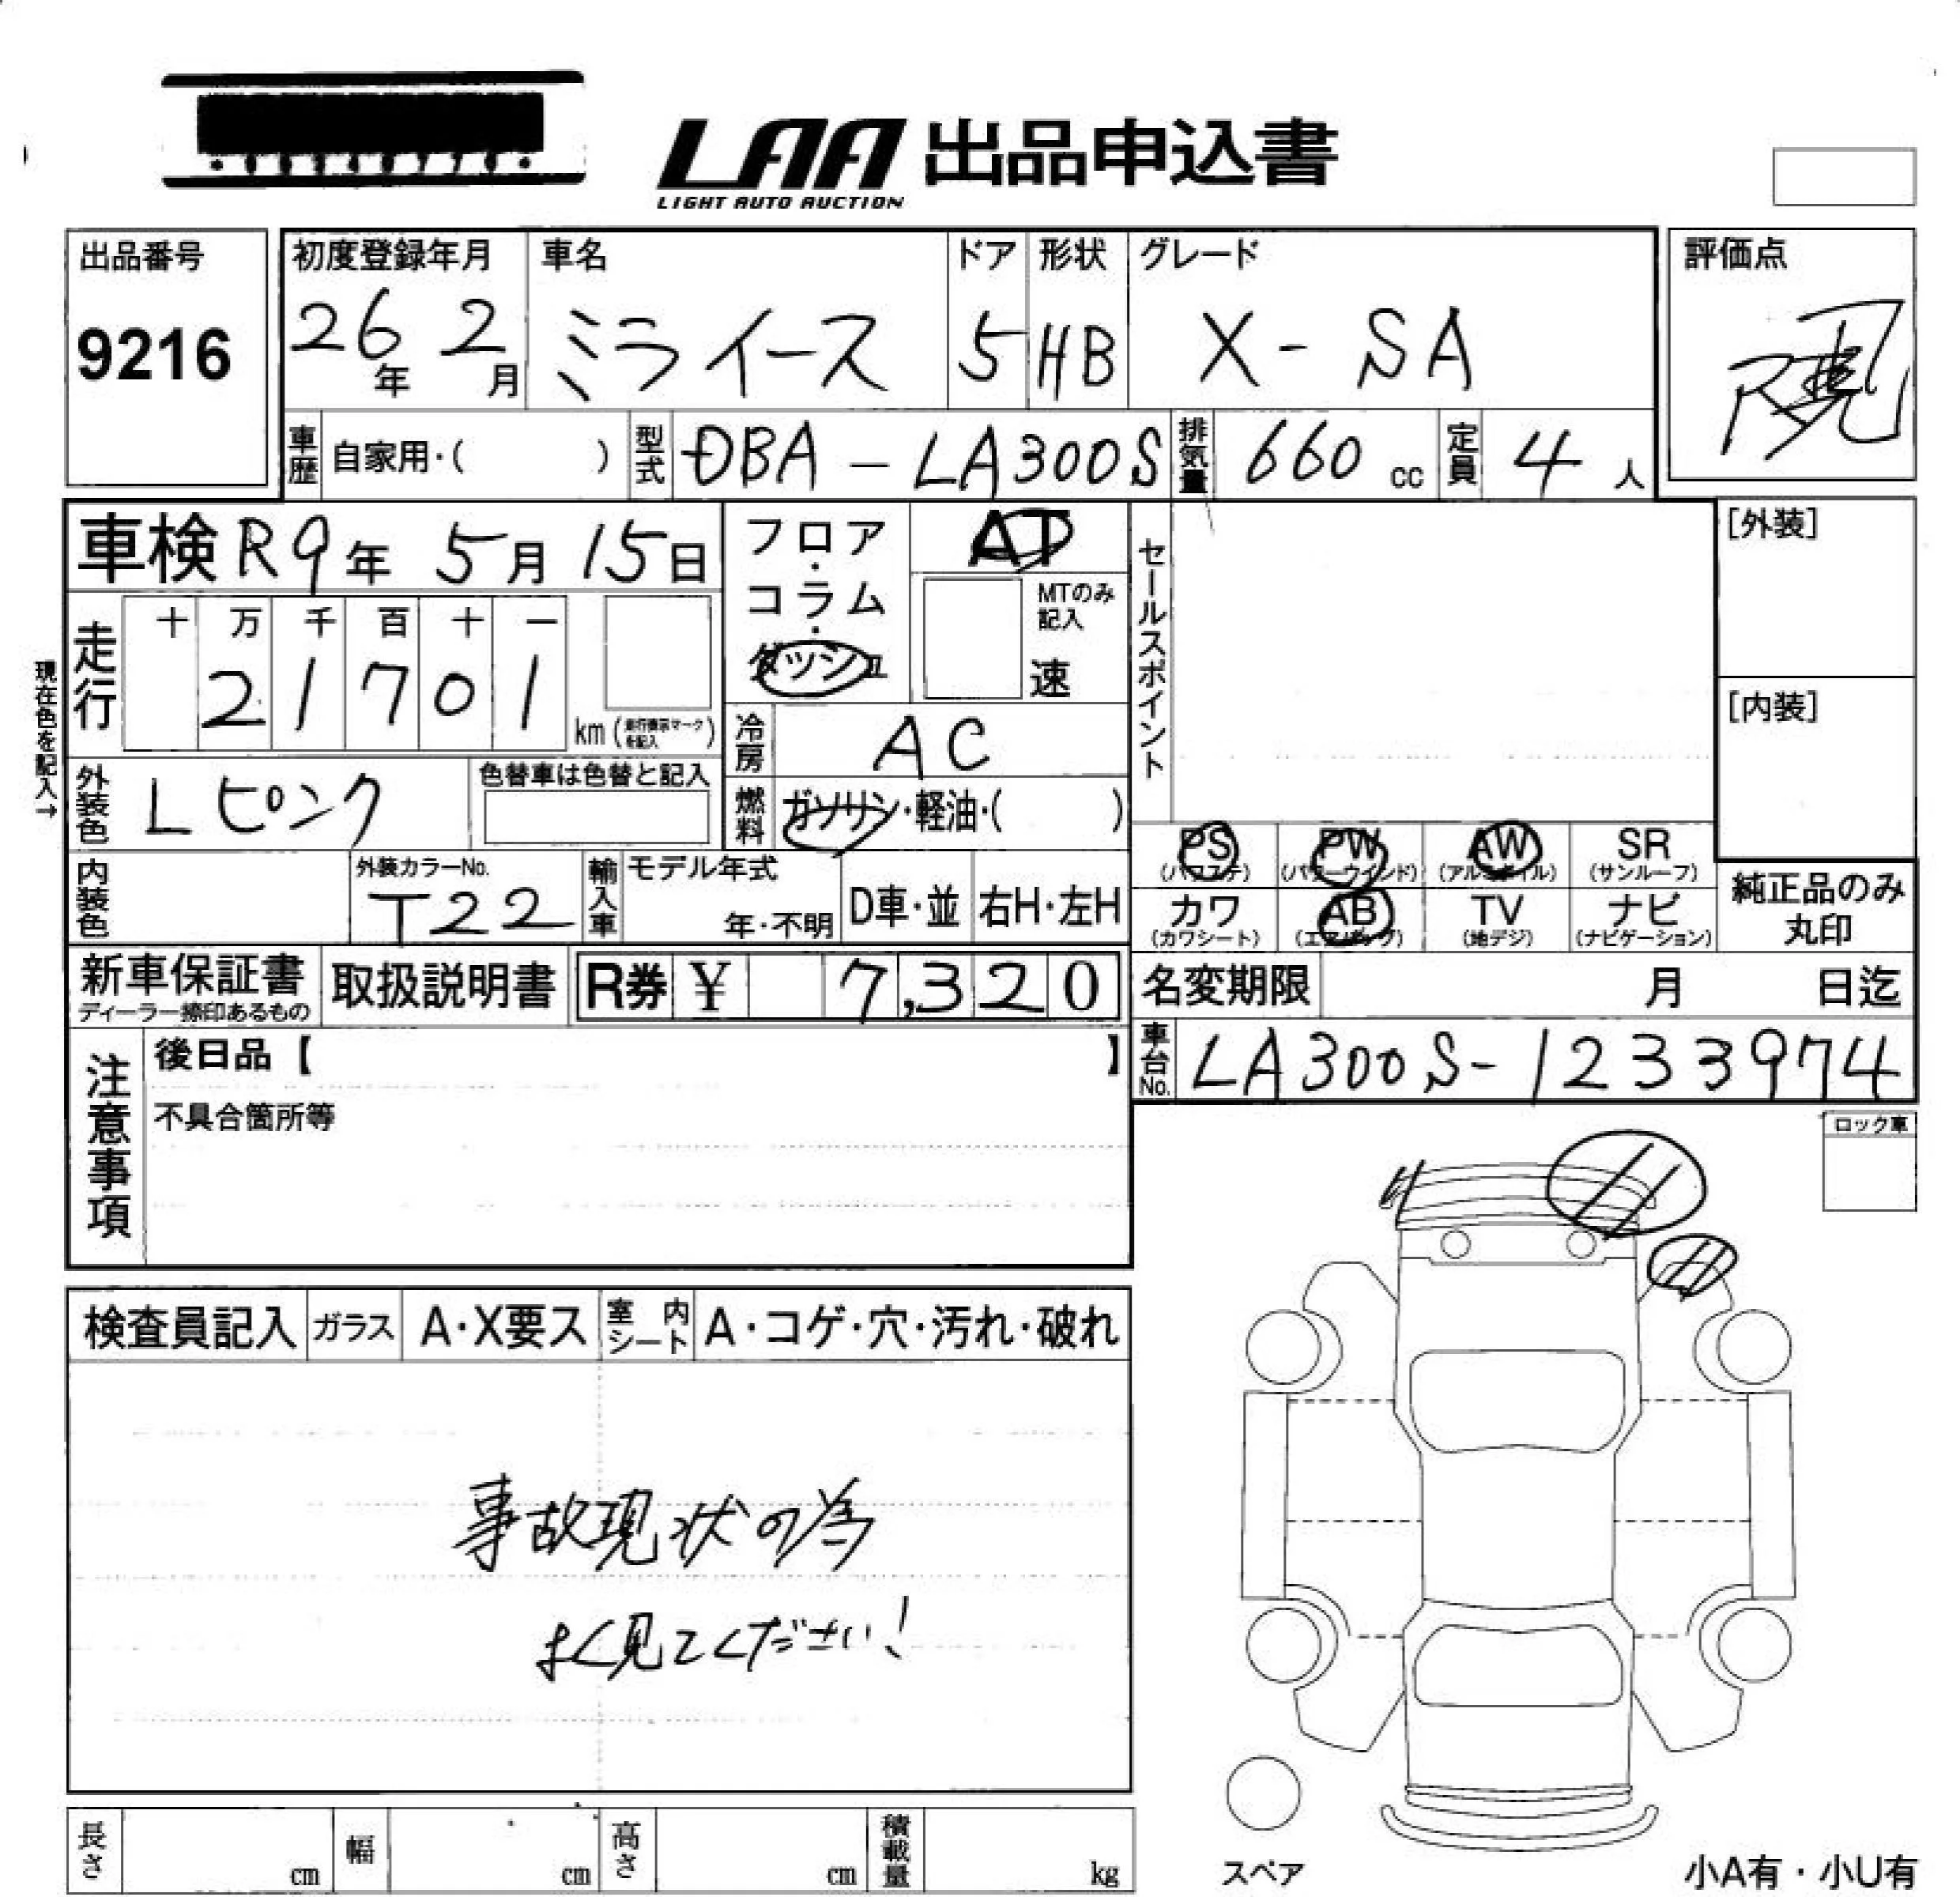 LAA 出品申込書
LIGHT AUTO AUCTION
出品番号
9216
初度登録年月
26年 2月
車名
ミライース
ドア
5
形状
HB
グレード
X - SA
評価点
車歴 自家用・( )
型式 DBA - LA300S
排気量 660 cc
定員 4 人
車検 R9年 5月 15日
フロア・コラム・ダッシュ
AT
MTのみ記入
速
セールスポイント
[外装]
[内装]
現在色を記入→
走行
十 万 千 百 十 一
2 1 7 0 1
km (走行表示マークを記入)
冷房 AC
外装色 Lピンク
色替車は色替と記入
燃料 ガソリン・軽油・( )
内装色
外装カラーNo.
T22
輸入車
モデル年式
年・不明
D車・並
右H・左H
PS (パワステ)
PW (パワーウインド)
AW (アルミホイル)
SR (サンルーフ)
カワ (カワシート)
AB (エアバッグ)
TV (地デジ)
ナビ (ナビゲーション)
純正品のみ
丸印
新車保証書
ディーラー捺印あるもの
取扱説明書
R券 ¥ 7,320
名変期限 月 日迄
車台No. LA300S-1233974
注意事項
後日品【 】
不具合箇所等
ロック車
検査員記入
ガラス A・X要ス
室内シート A・コゲ・穴・汚れ・破れ
事故現状の為
よく見てください!
長さ cm
幅 cm
高さ cm
積載量 kg
スペア
小A有・小U有